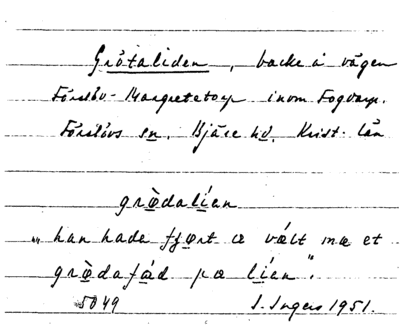 Grötaliden, backe å vägen
Förslöv-Margretetorp inom Fogdarp.
Förslövs sn. Bjäre hd. Krist. län
grødalien
"han hade fjørt æ vælt mæ et
grødafád pæ líen".
5049 I. Ingers 1951.